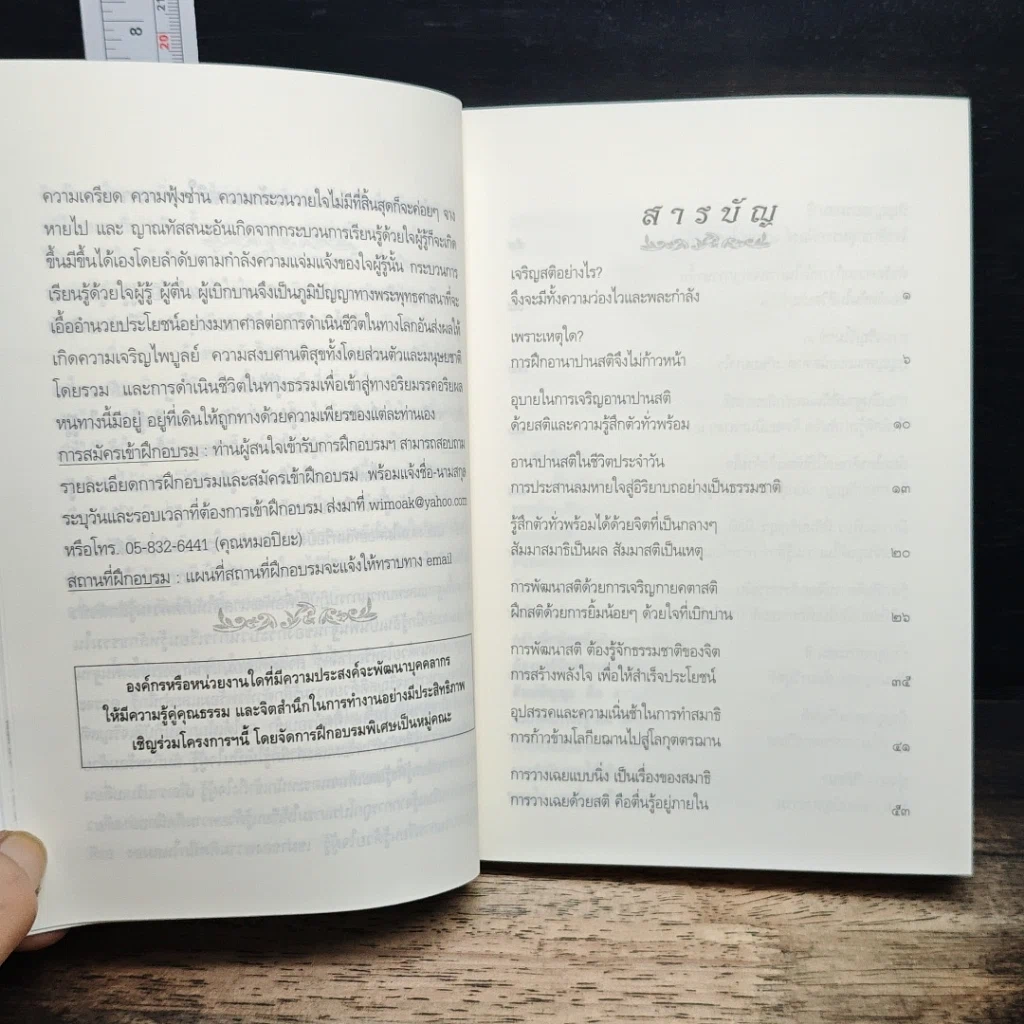 8
21
20
ความเครียด ความฟุ้งซ่าน ความกระวนวายใจไม่มีที่สิ้นสุดก็จะค่อยๆ จาง
หายไป และ ญาณทัสสนะอันเกิดจากกระบวนการเรียนรู้ด้วยใจผู้รู้ก็จะเกิด
ขึ้นมีขึ้นได้เองโดยลำดับตามกำลังความแจ่มแจ้งของใจผู้รู้นั้น กระบวนการ
เรียนรู้ด้วยใจผู้รู้ ผู้ตื่น ผู้เบิกบานจึงเป็นภูมิปัญญาทางพระพุทธศาสนาที่จะ
เอื้ออำนวยประโยชน์อย่างมหาศาลต่อการดำเนินชีวิตในทางโลกอันส่งผลให้
เกิดความเจริญไพบูลย์ ความสงบศานติสุขทั้งโดยส่วนตัวและมนุษยชาติ
โดยรวม และการดำเนินชีวิตในทางธรรมเพื่อเข้าสู่ทางอริยมรรคอริยผล
หนทางนี้มีอยู่ อยู่ที่เดินให้ถูกทางด้วยความเพียรของแต่ละท่านเอง
การสมัครเข้าฝึกอบรม : ท่านผู้สนใจเข้ารับการฝึกอบรมฯ สามารถสอบถาม
รายละเอียดการฝึกอบรมและสมัครเข้าฝึกอบรม พร้อมแจ้งชื่อ-นามสกุล
ระบุวันและรอบเวลาที่ต้องการเข้าฝึกอบรม ส่งมาที่ wimoak@yahoo.com
หรือโทร. 05-832-6441 (คุณหมอปิยะ)
สถานที่ฝึกอบรม : แผนที่สถานที่ฝึกอบรมจะแจ้งให้ทราบทาง email
องค์กรหรือหน่วยงานใดที่มีความประสงค์จะพัฒนาบุคคลากร
ให้มีความรู้คู่คุณธรรม และจิตสำนึกในการทำงานอย่างมีประสิทธิภาพ
เชิญร่วมโครงการฯนี้ โดยจัดการฝึกอบรมพิเศษเป็นหมู่คณะ
สารบัญ
เจริญสติอย่างไร?
จึงจะมีทั้งความว่องไวและพละกำลัง ๑
เพราะเหตุใด?
การฝึกอานาปานสติจึงไม่ก้าวหน้า ๖
อุบายในการเจริญอานาปานสติ
ด้วยสติและความรู้สึกตัวทั่วพร้อม ๑๐
อานาปานสติในชีวิตประจำวัน
การประสานลมหายใจสู่อิริยาบถอย่างเป็นธรรมชาติ ๑๓
รู้สึกตัวทั่วพร้อมได้ด้วยจิตที่เป็นกลางๆ
สัมมาสมาธิเป็นผล สัมมาสติเป็นเหตุ ๒๐
การพัฒนาสติด้วยการเจริญกายคตาสติ
ฝึกสติด้วยการยิ้มน้อยๆ ด้วยใจที่เบิกบาน ๒๖
การพัฒนาสติ ต้องรู้จักธรรมชาติของจิต
การสร้างพลังใจ เพื่อให้สำเร็จประโยชน์ ๓๕
อุปสรรคและความเนิ่นช้าในการทำสมาธิ
การก้าวข้ามโลกียฌานไปสู่โลกุตตรฌาน ๔๑
การวางเฉยแบบนิ่ง เป็นเรื่องของสมาธิ
การวางเฉยด้วยสติ คือตื่นรู้อยู่ภายใน ๕๓